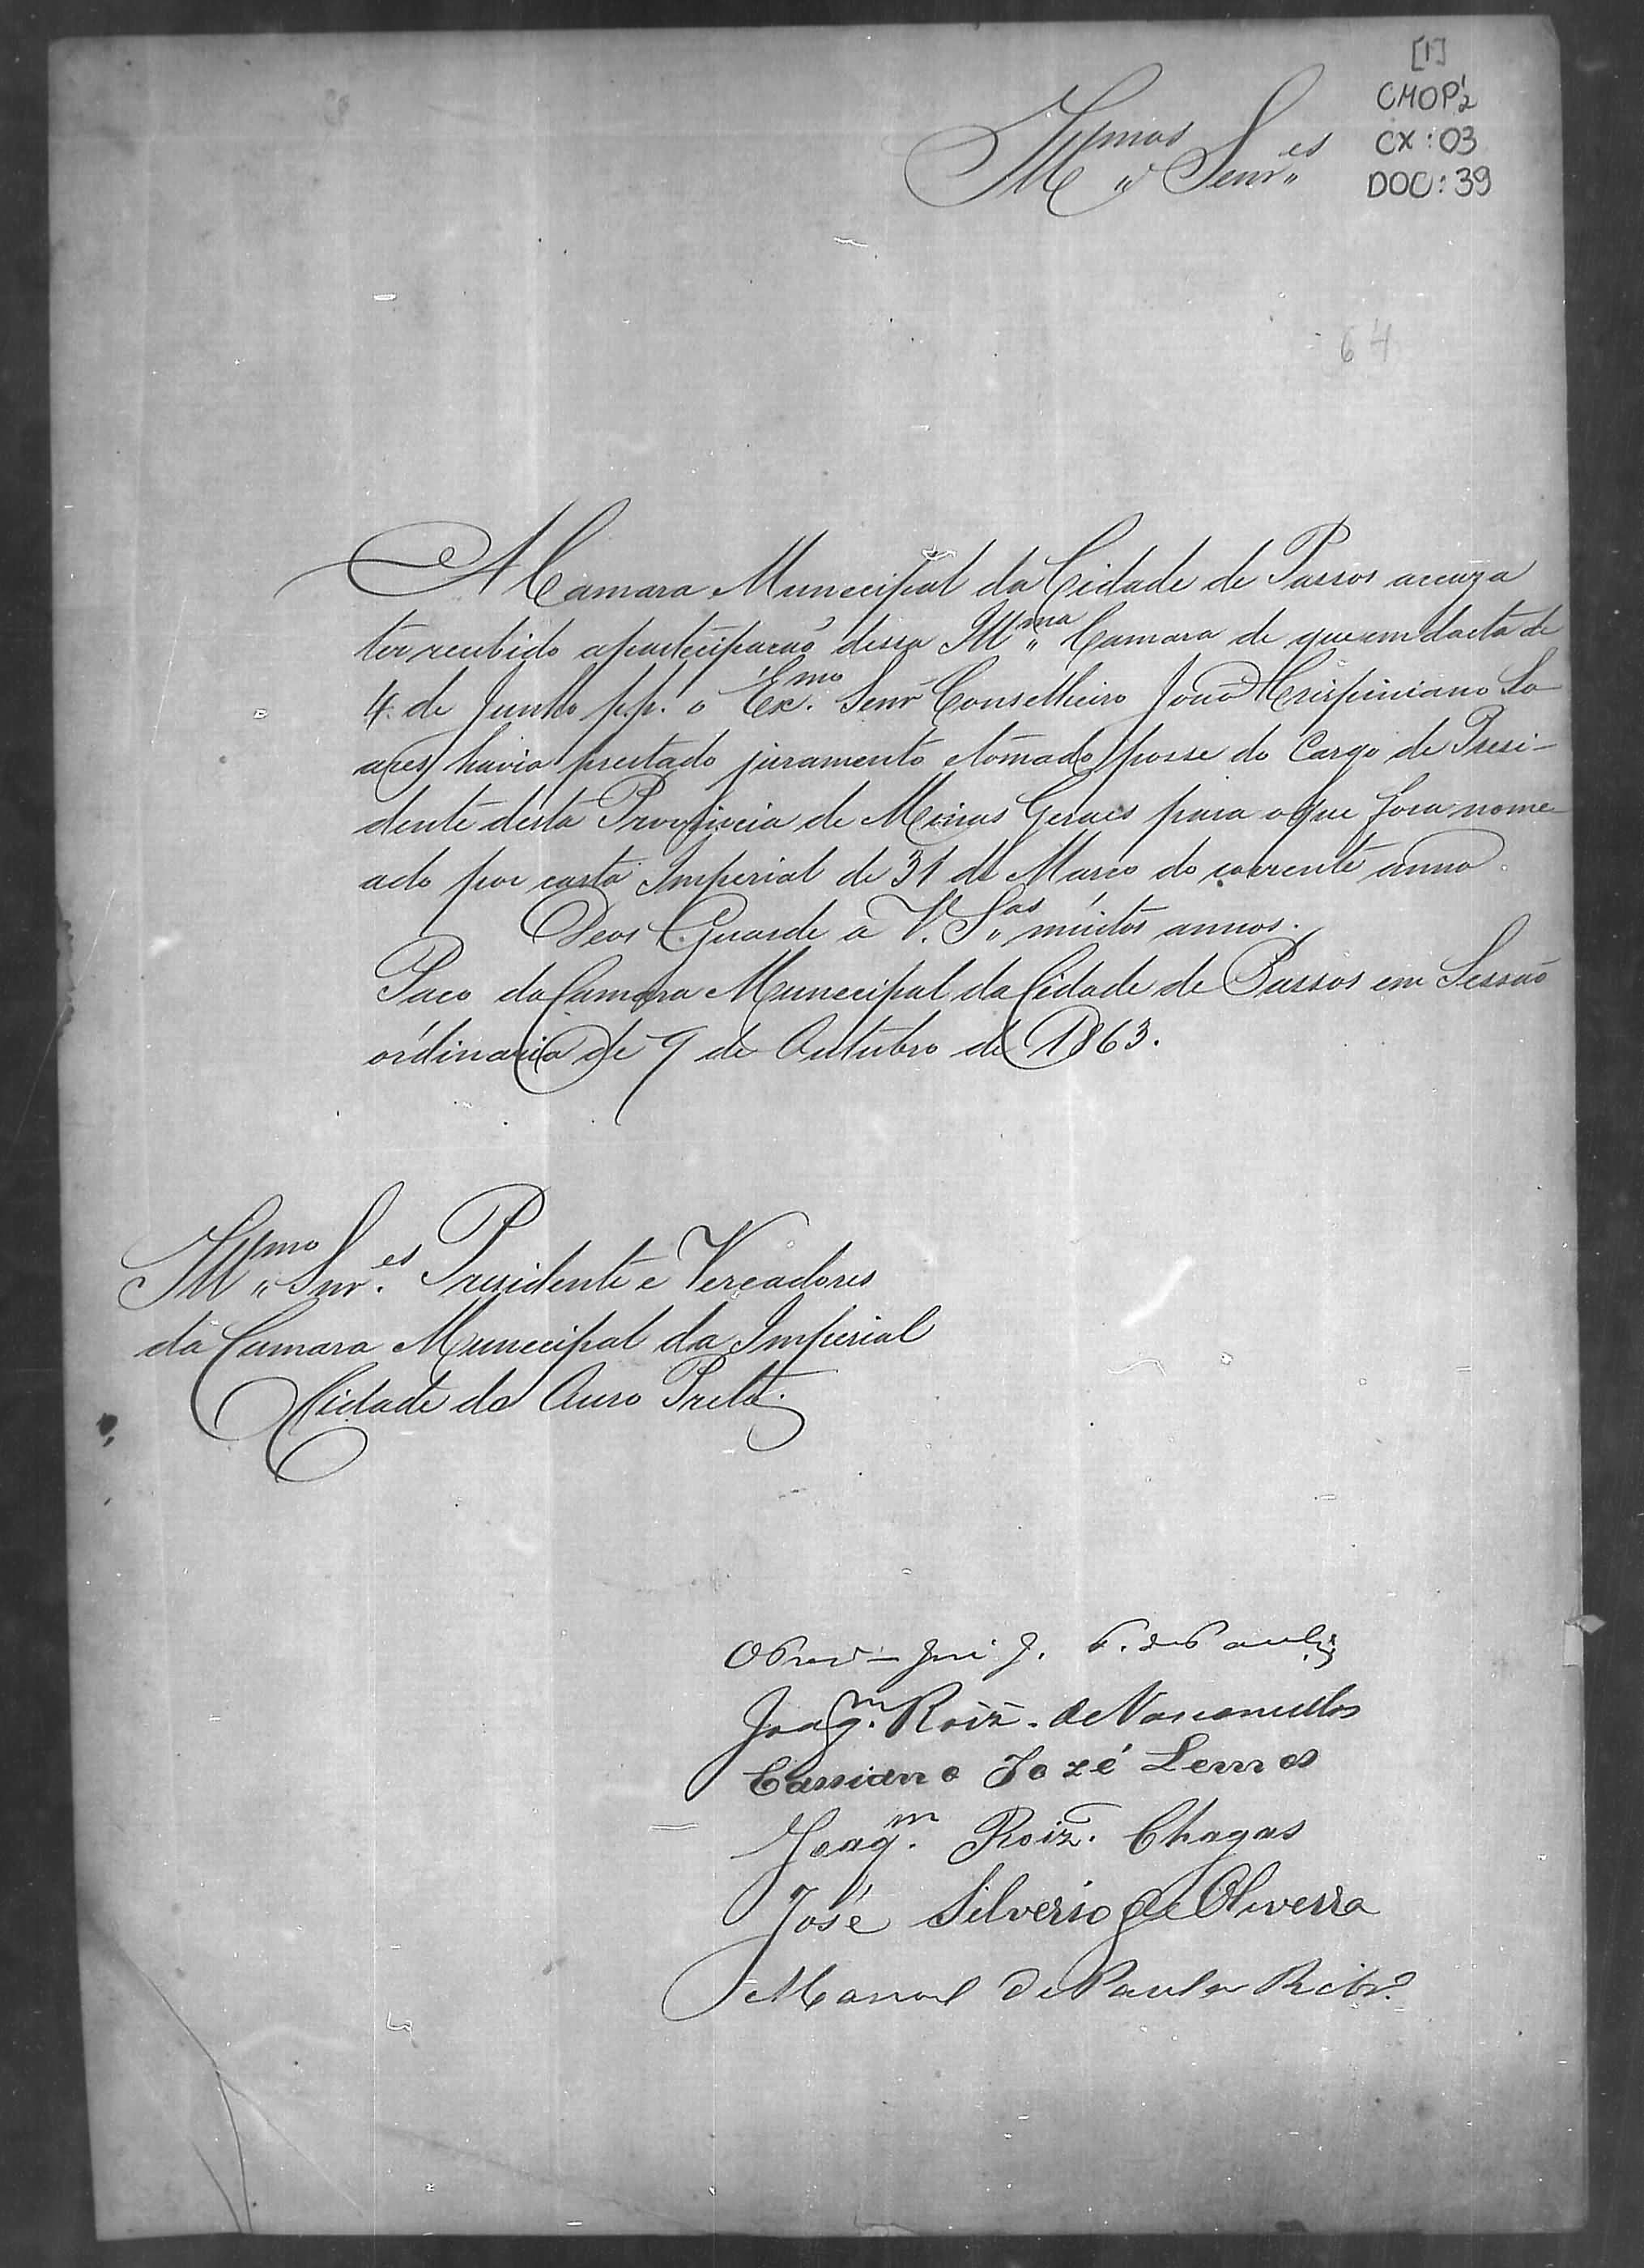 [1]
CMOP 1/2
CX: 03
DOC: 39
Illmos Senres
64
A Camara Municipal da Cidade de Passos accuza
ter recebido aparticipacaõ dessa Illma Camara de que em dacta de
4 de Junho p.p. o Exmo Senr Conselheiro Joaõ Crispiniano So
ares havia prestado juramento etomado posse do Cargo de Presi-
dente desta Provincia de Minas Geraes para o que fora nome-
ado por carta Imperial de 31 de Marco do corrente anno.
Deos Guarde a V. Sas muitos annos.
Paco da Camara Municipal da Cidade de Passos em Sessaõ
ordinaria de 9 de Outubro de 1863.
Illmo Snres Presidente e Vereadores
da Camara Municipal da Imperial
Cidade do Ouro Preto.
José J. F. de Paula
Joaqm Roiz de Vasconcellos
Cassiano Jozé Lemos
Joaqm Roiz Chagas
José Silverio de Oliveira
Manoel de Paula Ribro